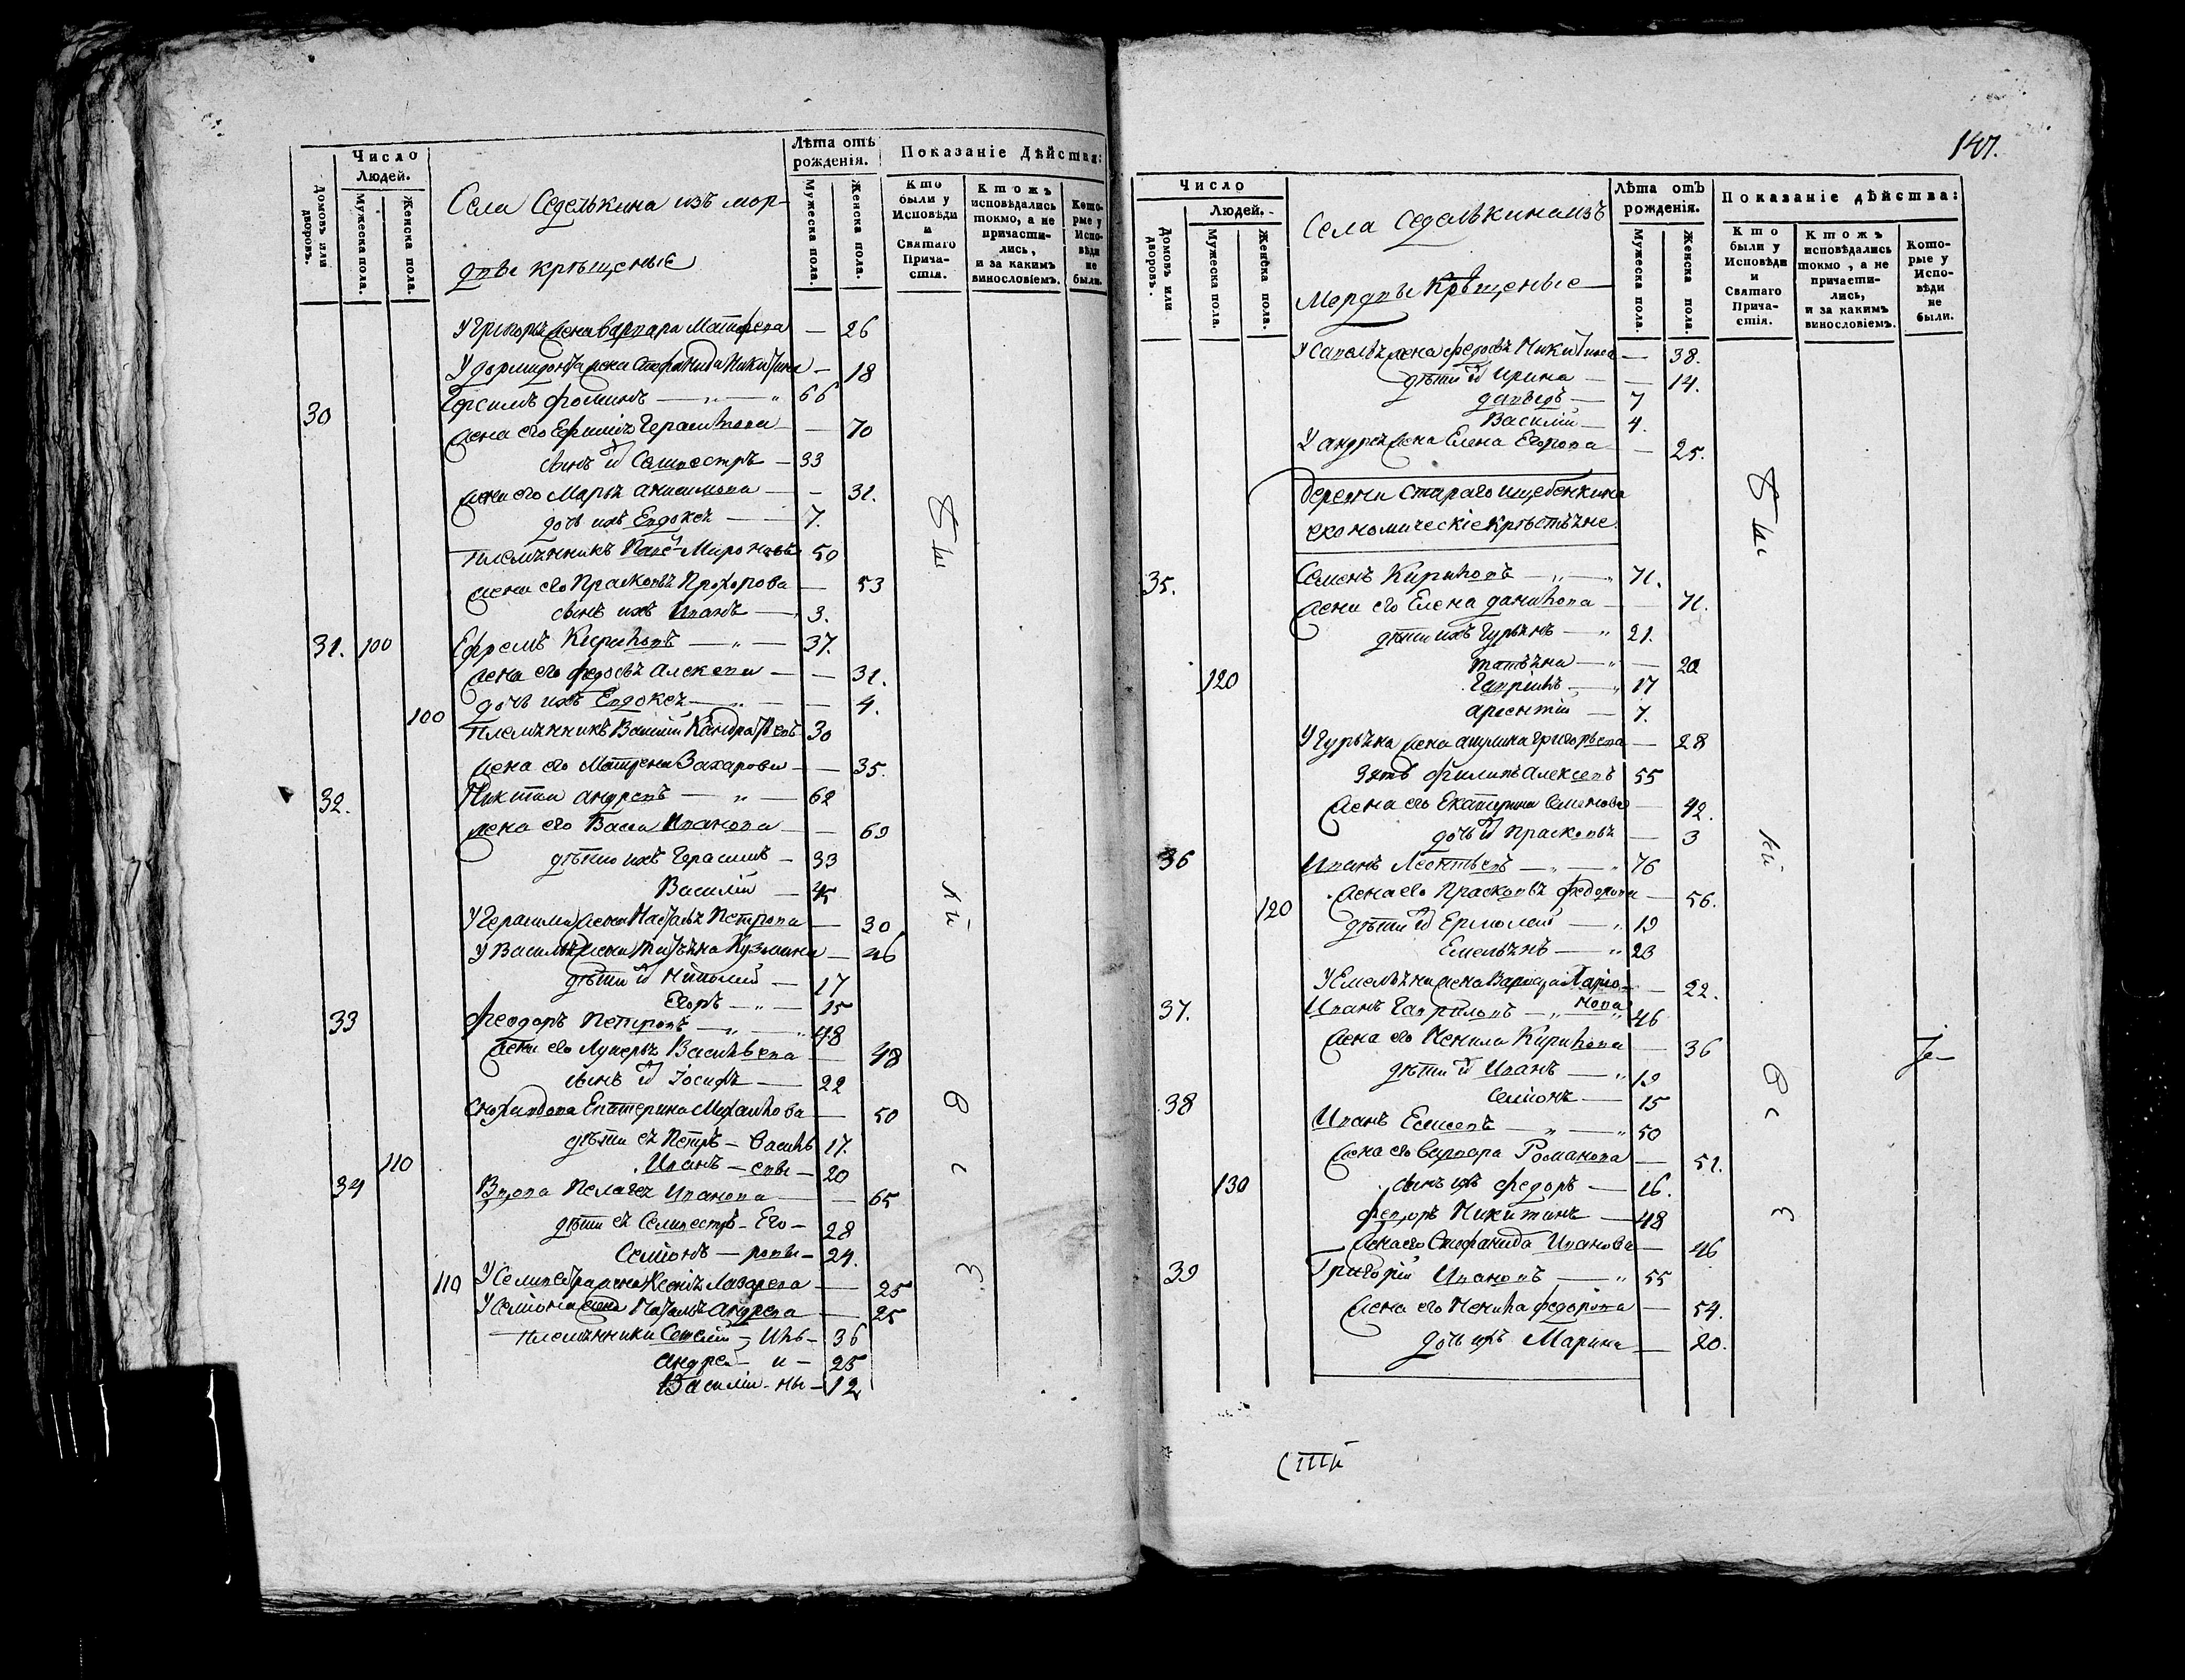 Число Людей.
Домовъ или дворовъ.
Мужеска пола.
Женска пола.
Села Седелькина изъ мор-
двы крѣщеныѣ
Лѣта отъ рожденія.
Мужеска пола.
Женска пола.
Показаніе Дѣйства:
Кто были у Исповѣди и Святаго Прича-стія.
Ктожъ исповѣдались токмо, а не причасти-лись, и за какимъ винословіемъ.
Кото-рые у Испо-вѣди не были.
У Григорья жена Варвара Матвѣева — 26
У Дормидонта жена Стефанида Никитина — 18
30 Герсимъ Фоминъ — „ — „ 66
жена его Ефимія Герасимова — 70
сынъ их Селивестръ — 33
жена его Марья Анисимова — — 31.
дочь ихъ Евдокея — 7.
племянникъ Мироновъ 50
жена его Прасковья Прохорова — 53
сынъ ихъ Иванъ — 3.
31. 100 Ефремъ Кириловъ — „ — 37.
жена его Федосья Алексева — — 31.
дочь ихъ Евдокея — „ — — 4.
100 племянникъ Василій Кандратьевъ 30
жена его Матрена Захарова — — 35.
32. Никита Андревъ — „ — 62
жена его Васса Иванова — — 69
дѣти ихъ Герасимъ — 33
Василій — 45
У Герасима жена Наталья Петрова — 30
У Василья жена Татьяна Кузмина — 46
дѣти их — 17
Егоръ — „ — 15
33 Феодоръ Петровъ — „ — „ 48
жена его Лукерья Васильева — 48
сынъ их Іосифъ — 22
Екатерина Михайлова — 50
дѣти ея Петръ — Василь 17.
110 Иванъ — евы — 20
34 Вдова Пелагея Иванова — — 65
дѣти ея Селивестръ — Его — 28
Семіонъ — ровы — 24.
110 У Селивестра жена Ксенія Лазарева — 25
У Семіона жена Наталья Андрева — 25
племянники — Иль — 36
Андрей — и — 25
Василій — ны — 12
147.
Число Людей.
Домовъ или дворовъ.
Мужеска пола.
Женска пола.
Села Седелькина изъ
Мордвы Крѣщеныѣ
Лѣта отъ рожденія.
Мужеска пола.
Женска пола.
Показаніе дѣйства:
Кто были у Исповѣди и Святаго Прича-стія.
Ктожъ исповѣдались токмо, а не причасти-лись, и за какимъ винословіемъ.
Кото-рые у Испо-вѣди не были.
У Савелья жена Федосья Никитина — 38.
дѣти их Ирина — — 14.
Давыдъ — 7
Василій — 4.
У Андрея жена Елена Егорова — 25.
Деревни Стараго Ищебенкина
економическіе крѣстьяне
35. Семенъ Кириловъ — „ — „ 71.
жена его Елена Данилова — — 71.
дѣти ихъ Гурьянъ — „ 21.
татьяна — „ — 20
120 Гаврилъ — „ 17
арсентій — 7.
У Гурьяна жена акулина Григорьева — 28
Зять Филипъ Алексевъ 55
жена его Екатерина Семенова — 42.
дочь их Прасковья — 3
36 Иванъ Леонтьевъ — „ — „ 76
жена его Прасковья Федорова — 56.
120 дѣти их Ермолай — „ 19
Емельянъ — „ 23
У Емельяна жена Варвара Ларіо-
нова — 22.
37. Иванъ Гавриловъ — „ — „ 46
жена его Ненила Кирилова — 36
дѣти их Иванъ — „ 19
Семіонъ — 15
38 Иванъ Елисевъ — „ — „ 50
жена его Варвара Романова — 51.
130 сынъ ихъ Федоръ — 16.
Федоръ Никитинъ — 48
жена его Стефанида Иванова — 46
39 Григорій Ивановъ — „ 55
жена его Ненила Федорова — 54.
дочь ихъ Марина — 20.